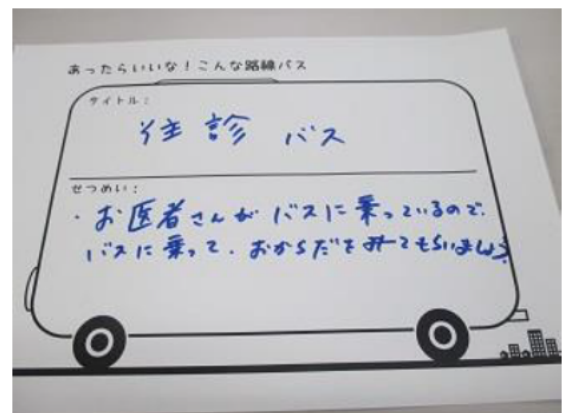 あったらいいな！こんな路線バス
タイトル：
往診バス
せつめい：
・お医者さんがバスに乗っているので、
バスに乗って、おからだをみてもらいましょう